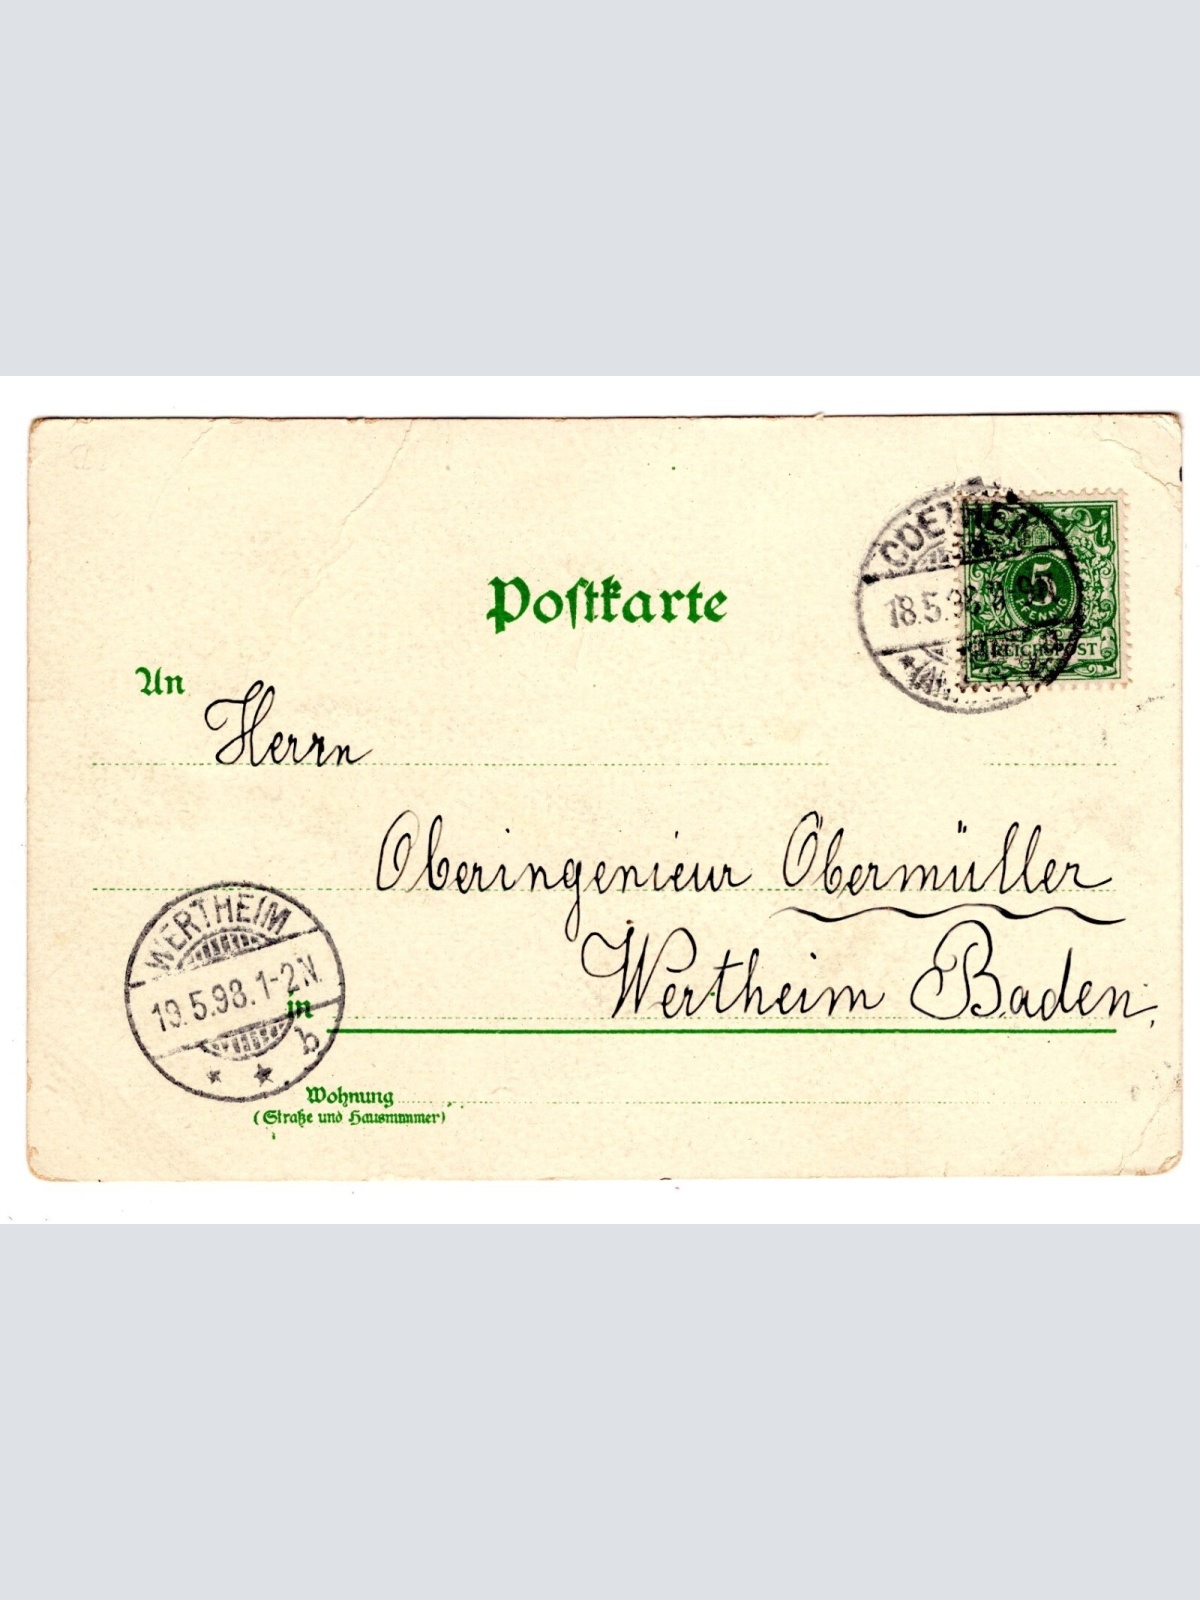 Postkarte
COETHEN
18.5.98
5
PFENNIG
REICHSPOST
An
Herrn
Oberingenieur Obermüller
Wertheim Baden.
in
WERTHEIM
19.5.98.1-2N.
* * b
Wohnung
(Straße und Hausnummer)